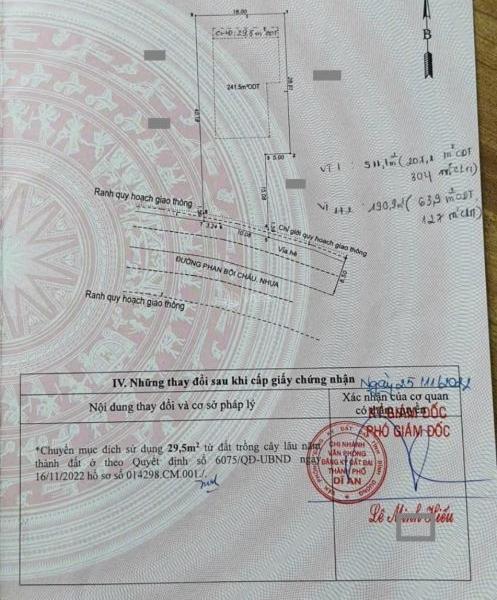 18.00
29,5 m² ODT
B
241.5m²ODT
5.00
VT 1 : 511,1 m² (207,1 m² ODT
304 m² cln)
190,9 m² ( 63,9 m² ODT
127 m² cln)
Ranh quy hoạch giao thông
3.24
10.08
Chỉ giới quy hoạch giao thông
Vỉa hè
8.50
ĐƯỜNG PHAN BỘI CHÂU, NHỰA
Ranh quy hoạch giao thông
IV. Những thay đổi sau khi cấp giấy chứng nhận
Ngày 25/11/2022
Nội dung thay đổi và cơ sở pháp lý
Xác nhận của cơ quan
có thẩm quyền
KT.GIÁM ĐỐC
PHÓ GIÁM ĐỐC
*Chuyển mục đích sử dụng 29,5m² từ đất trồng cây lâu năm
thành đất ở theo Quyết định số 6075/QĐ-UBND ngày
16/11/2022 hồ sơ số 014298.CM.001./.
CHI NHÁNH
VĂN PHÒNG
ĐĂNG KÝ ĐẤT ĐAI
THÀNH PHỐ
DĨ AN
Lê Minh Hiếu